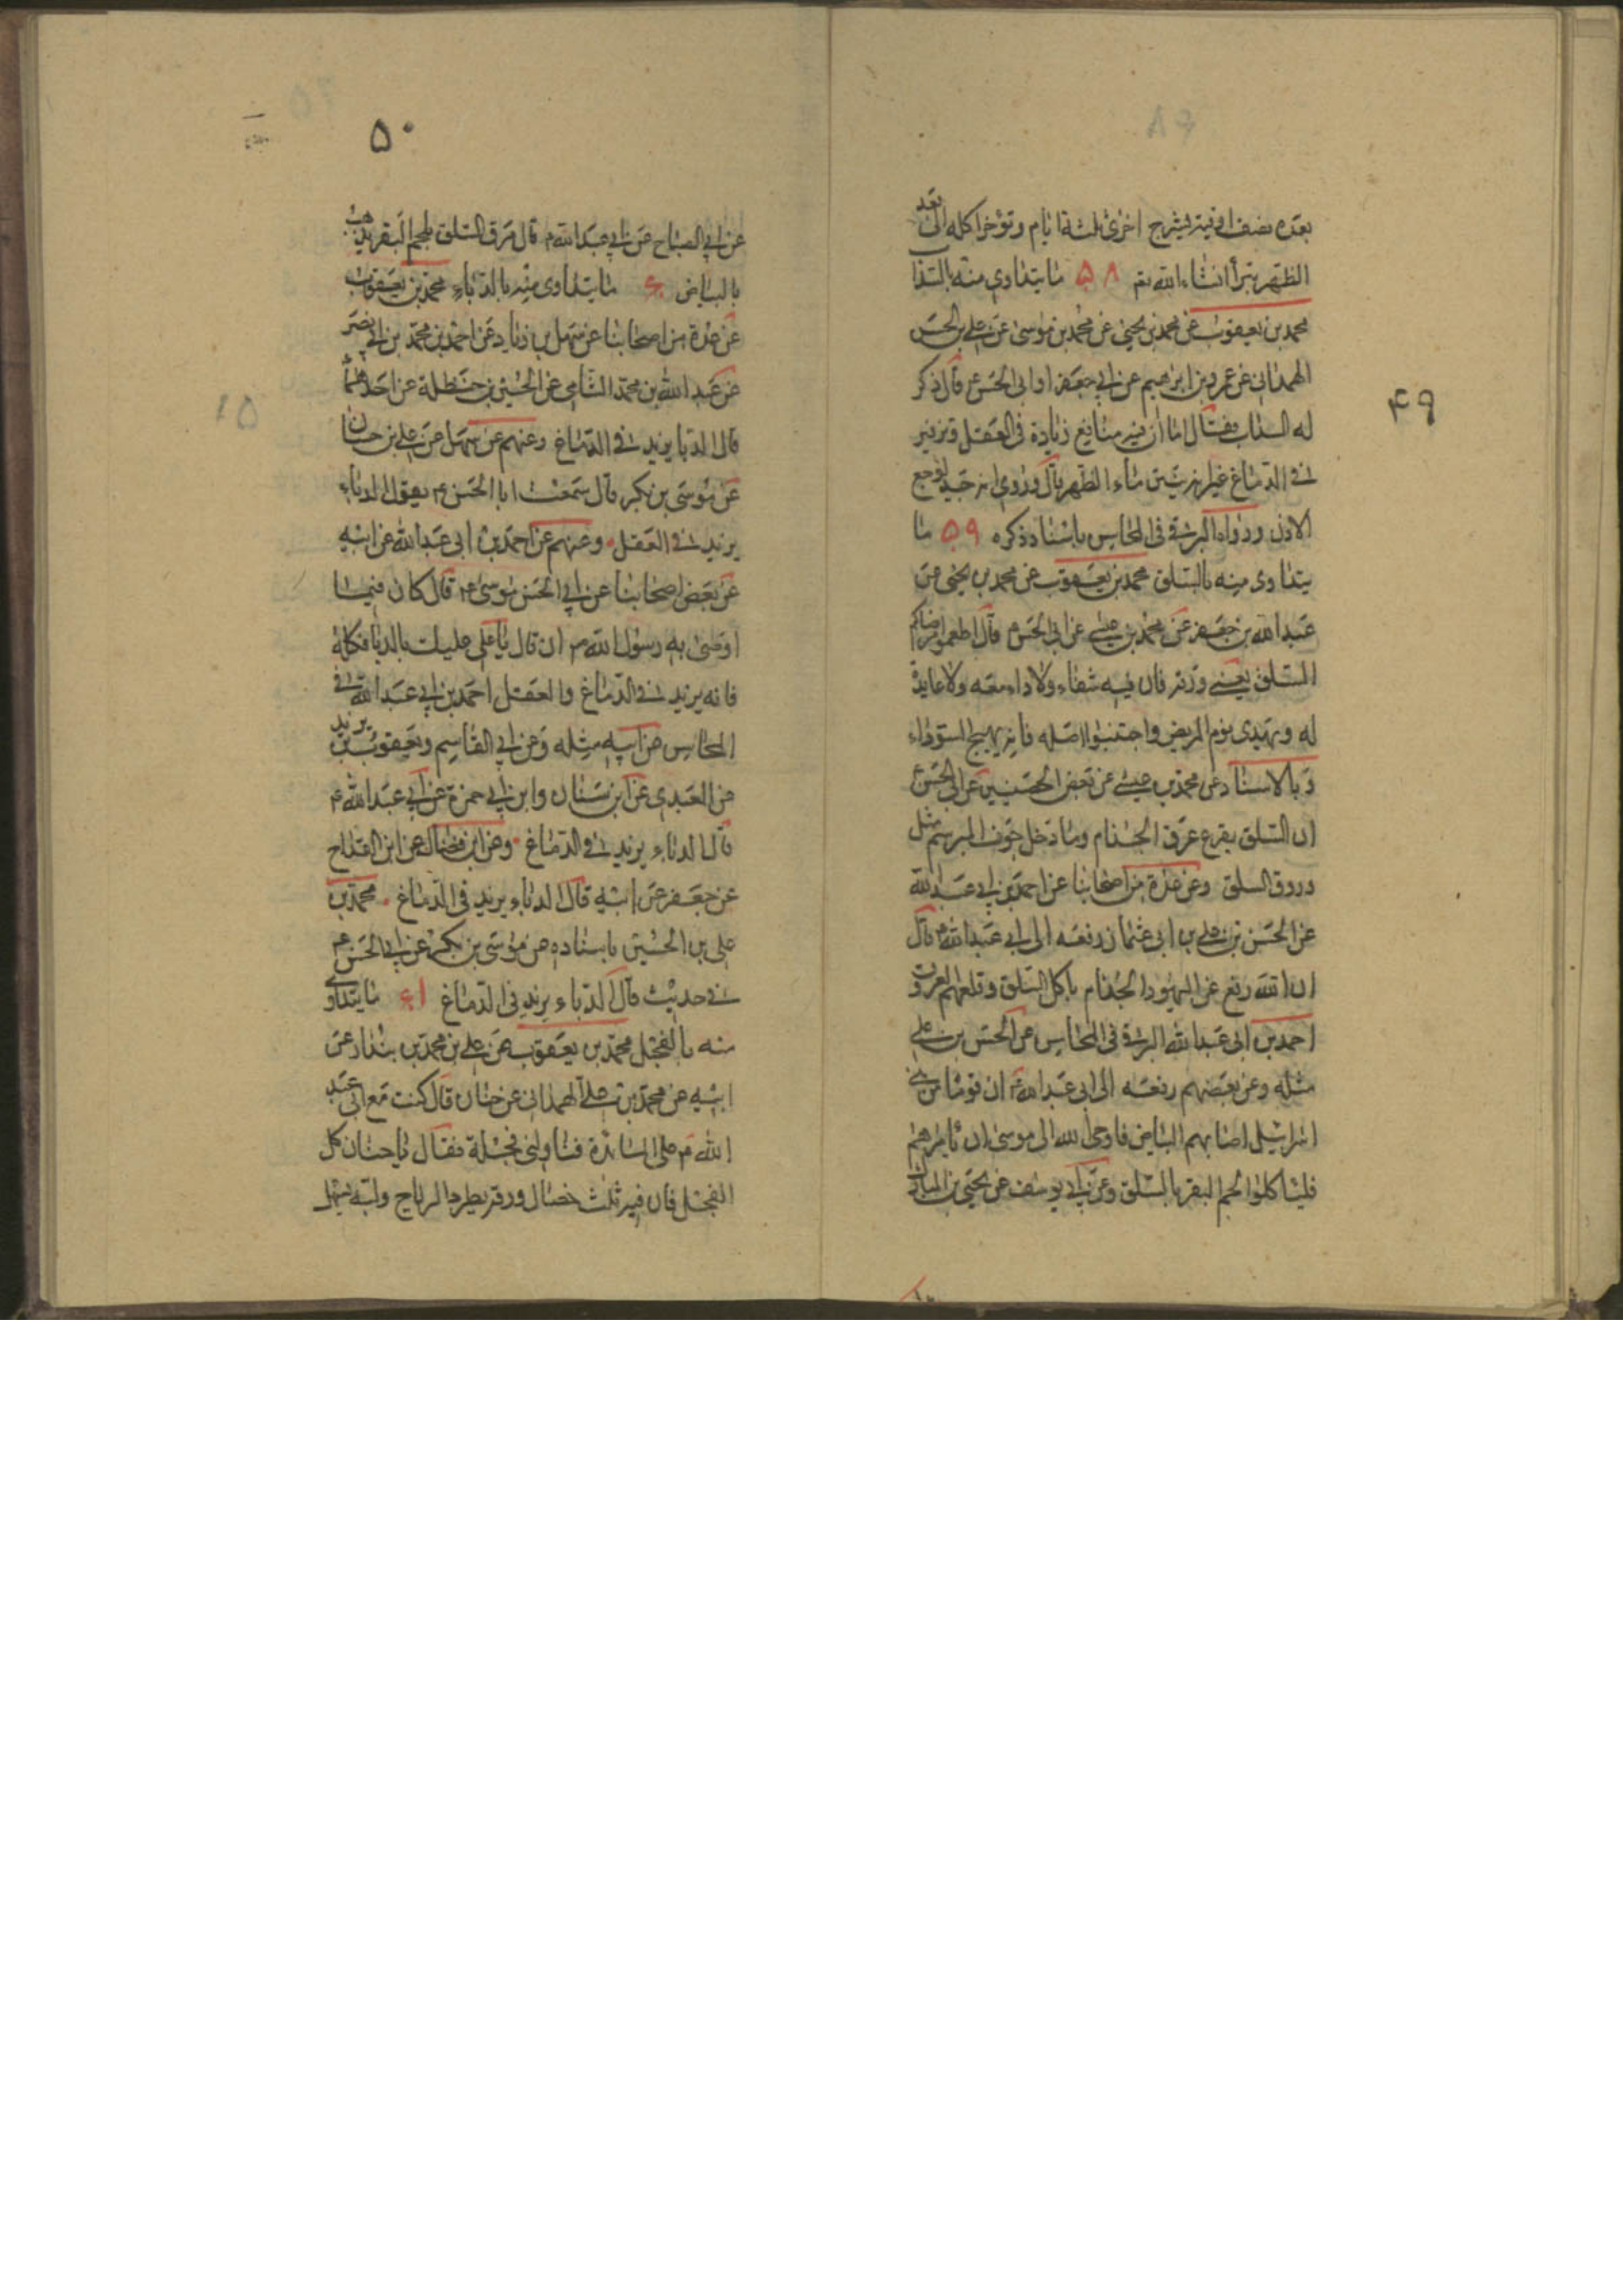 ۴۹
بعده نصف اوقية شيرج اخرى ثلثة ايام وتؤخر اكله الى بعد
الظهر تبرأ انشاء الله تع ۵۸ ما يتداوى منه بالسذاب
محمد بن يعقوب عن محمد بن يحيى عن محمد بن موسى عن علي بن الحسن
الهمداني عن عمرو بن ابرهيم عن ابي جعفر او ابي الحسن ع قال ذكر
له السذاب فقال اما ان فيه منافع زيادة في العقل وتوفير
في الدماغ غير انه ينتن ماء الظهر قال وروي انه جيد لوجع
الاذن ورواه البرقي في المحاسن باسناد ذكره ۵۹ ما
يتداوى منه بالسلق محمد بن يعقوب عن محمد بن يحيى عن
عبد الله بن جعفر عن محمد بن عيسى عن ابي الحسن ع قال اطعموا مرضاكم
السلق يعني ورقه فان فيه شفاء ولا داء معه ولا غايلة
له ويهدى نوم المريض واجتنبوا اصله فانه يهيج السوداء
وبالاسناد عن محمد بن عيسى عن بعض الحصينيين عن ابي الحسن ع
ان السلق يقمع عرق الجذام وما دخل جوف المبرسم مثل
ورق السلق وعن عدة من اصحابنا عن احمد بن ابي عبد الله
عن الحسن بن علي بن ابي عثمان رفعه الى ابي عبد الله ع قال
ان الله رفع عن اليهود الجذام باكل السلق وقلعهم العروق
احمد بن ابي عبد الله البرقي في المحاسن عن الحسن بن علي
مثله وعن بعضهم رفعه الى ابي عبد الله ع ان قوما من بني
اسرائيل اصابهم البياض فاوحى الله الى موسى ان يأمرهم
فلياكلوا لحم البقر بالسلق وعن ابي يوسف عن يحيى بن المبارك
۵۰
عن ابي الصباح عن ابي عبد الله ع قال مرق السلق بلحم البقر يذهب
بالبياض ۶۰ ما يتداوى منه بالدباء محمد بن يعقوب
عن عدة من اصحابنا عن سهل بن زياد عن احمد بن محمد بن ابي نصر
عن عبد الله بن محمد الشامي عن الحسين بن حنظلة عن احدهما
قال الدبا يزيد في الدماغ وعنهم عن سهل عن علي بن حسان
عن موسى بن بكر قال سمعت ابا الحسن ع يقول الدباء
يزيد في العقل وعنهم عن احمد بن ابي عبد الله عن ابيه
عن بعض اصحابنا عن ابي الحسن موسى ع قال كان فيما
اوصى به رسول الله ص ان قال يا علي عليك بالدبا فكله
فانه يزيد في الدماغ والعقل احمد بن ابي عبد الله في
المحاسن عن ابيه مثله وعن ابي القاسم ويعقوب بن يزيد
عن العبدي عن ابن سنان وابن ابي حمزة عن ابي عبد الله ع
قال الدباء يزيد في الدماغ وعن ابن فضال عن ابن القداح
عن جعفر عن ابيه قال الدباء يزيد في الدماغ محمد بن
علي بن الحسين باسناده عن موسى بن بكر عن ابي الحسن ع
في حديث قال الدباء يزيد في الدماغ ۶۱ ما يتداوى
منه بالفجل محمد بن يعقوب عن علي بن محمد بن بندار عن
ابيه عن محمد بن علي الهمداني عن حنان قال كنت مع ابي عبد
الله ع على المائدة فناولني فجلة فقال يا حنان كل
الفجل فان فيه ثلث خصال ورقه يطرد الرياح ولبه يسهل